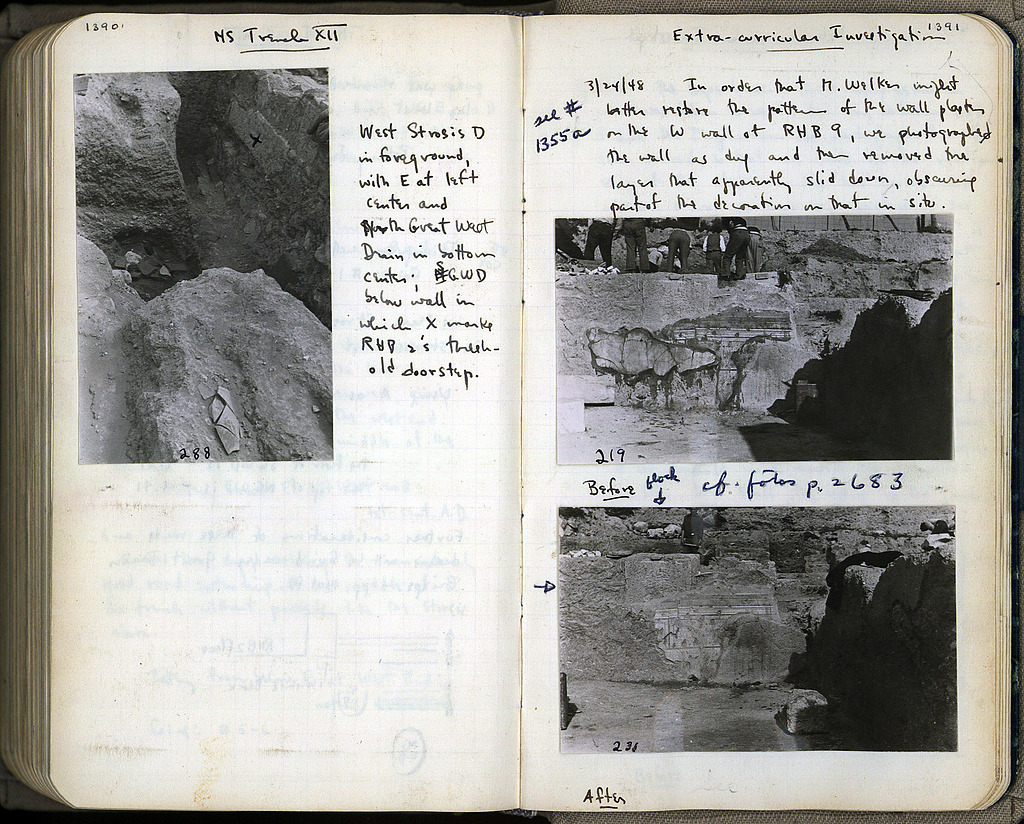 1390
NS Trench XII
West Strosis D
in foreground,
with E at left
center and
North Great West
Drain in bottom
center; SGWD
below wall in
which X marks
RHB 2's thresh-
old doorstep.
X
288
1391
Extra-curricular Investigation
3/24/48 In order that M. Welker might
better restore the pattern of the wall plaster
on the W wall of RHB 9, we photographed
the wall as dug and then removed the
layer that apparently slid down, obscuring
part of the decoration on that in situ.
see #
1355a
219
Before block cf. fotos p. 2683
After